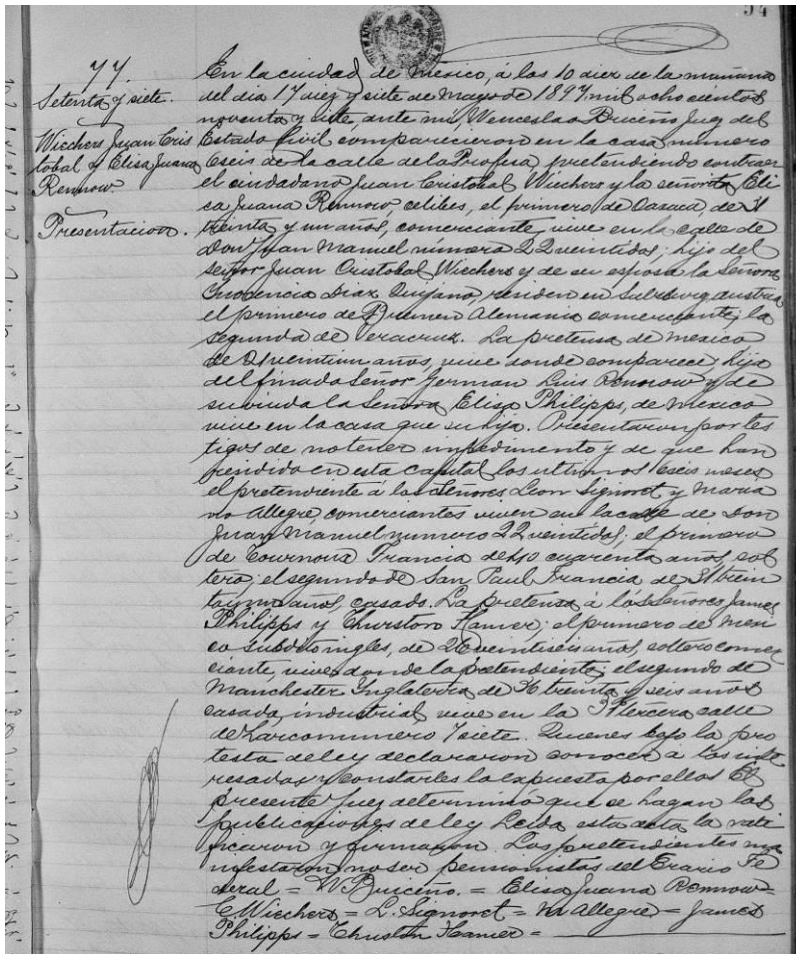 54
77.
Setenta y siete.
Wiechers Juan Cris
tobal y Elisa Juana
Rennow.
Presentacion.
En la ciudad de Mexico, á las 10 diez de la mañana
del dia 17 diez y siete de Mayo de 1897 mil ochocientos
noventa y siete, ante mi, Wenceslao Briceño Juez del
Estado Civil comparecieron en la casa numero
6 seis de la calle de la Profesa, pretendiendo contraer
el ciudadano Juan Cristobal Wiechers y la señorita Eli
sa Juana Rennow, célibes, el primero de Oaxaca, de 31
treinta y un años, comerciante, vive en la calle de
Don Juan Manuel número 22 veintidos; hijo del
señor Juan Cristobal Wiechers y de su esposa la Señora
Inocencia Diaz Quijano, residen en Austria
el primero de Bremen Alemania comerciante; la
segunda de Veracruz. La pretensa de Mexico
de 21 veintiun años, vive donde comparece, hija
del finado Señor German Luis Rennow y de
su viuda la Señora Elisa Philipps, de Mexico
vive en la casa que su hija. Presentaron por tes
tigos de no tener impedimento y de que han
rendido en esta capital los ultimos 6 seis meses
el pretendiente á los Señores Leon Signoret y Maria
no Allegre, comerciantes viven en la calle de Don
Juan Manuel numero 22 veintidos; el primero
de Francia de 40 cuarenta años, sol
tero; el segundo de San Paul Francia de 31 trein
ta y un años, casado. La pretensa á los Señores James
Philipps y Thurston Hamer; el primero de Mexi
co subdito ingles, de 26 veintiseis años, soltero comer
ciante, vive donde la pretendiente; el segundo de
Manchester Inglaterra de 36 treinta y seis años
casado, industrial vive en la 3ª tercera calle
de numero 7 siete. Quienes bajo la pro
testa de ley declararon conocer á los inte
resados y constarles lo expuesto por ellos El
presente Juez determinó que se hagan las
publicaciones de ley Leida esta acta la rati
ficaron y firmaron. Los pretendientes ma
nifestaron no ser pensionistas del Erario Fe
deral = W Briceño. = Elisa Juana Rennow =
C. Wiechers = L. Signoret = M Allegre = James
Philipps = Thurston Hamer =